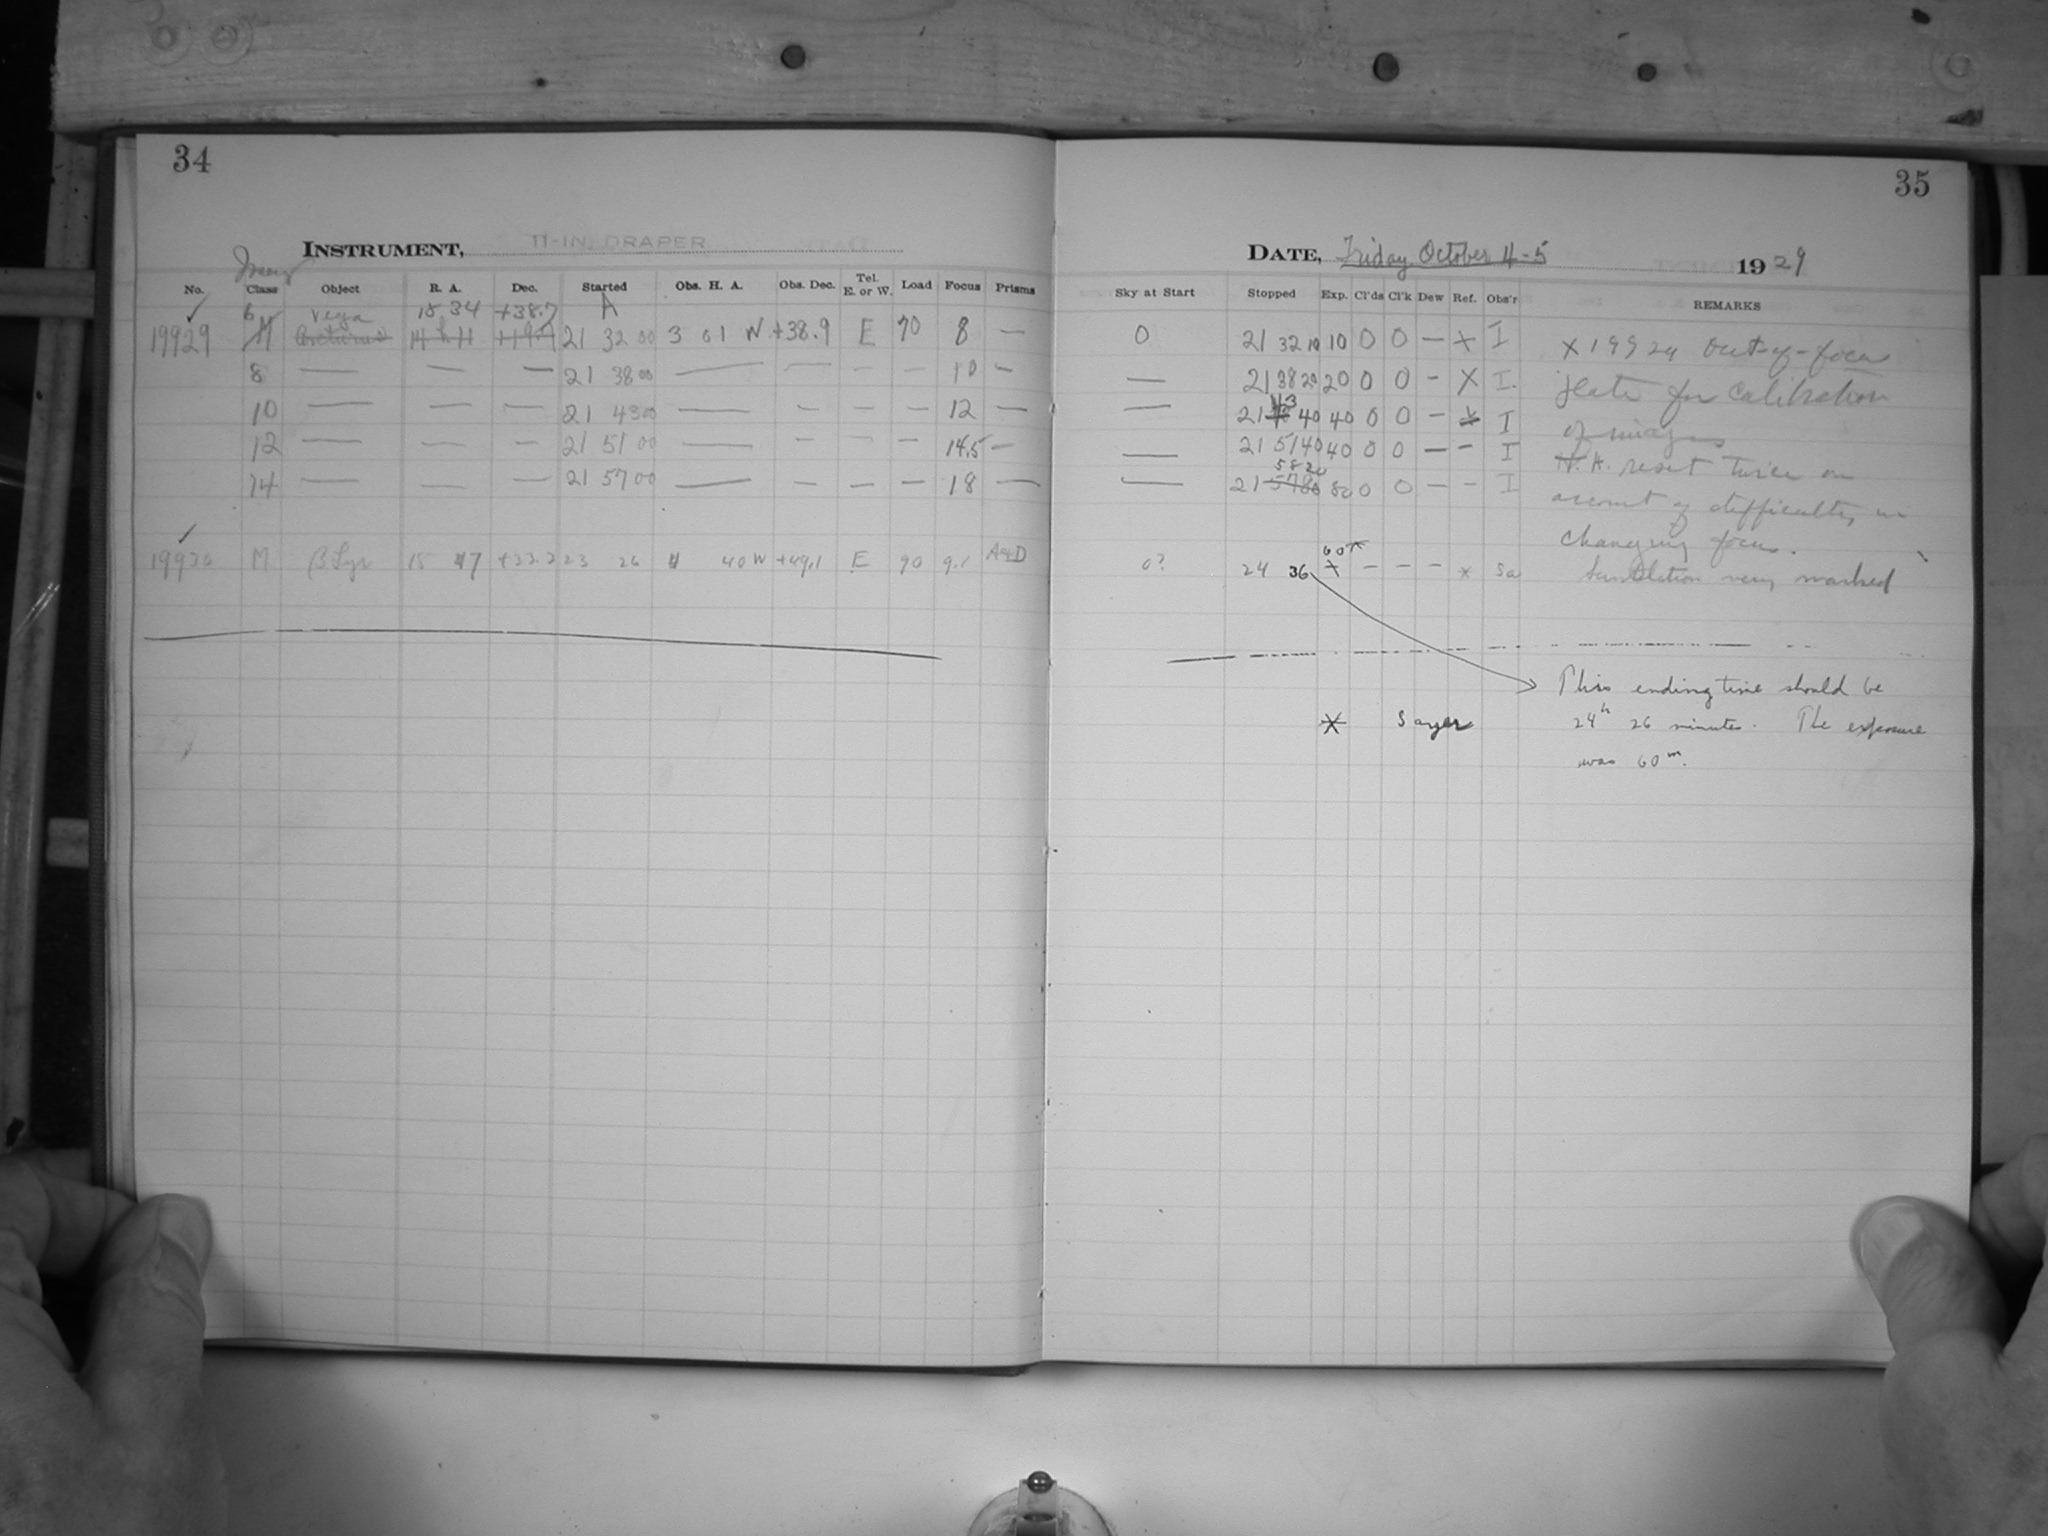 34
35
INSTRUMENT, 11-IN. DRAPER
DATE, Friday October 4-5 1929
No. Class Object R. A. Dec. Started Obs. H. A. Obs. Dec. Tel. E. or W. Load Focus Prisms
Sky at Start Stopped Exp. Cl'ds Cl'k Dew Ref. Obs'r REMARKS
6 Vega 18 34 +38.7 A
19929 M Arcturus 14h 11 21 32 00 3 01 W +38.9 E 70 8 —
0 21 32 10 10 0 0 — X I X 19929 Out-of-focus
8 — — — 21 38 00 — — — — 10 —
— 21 38 20 20 0 0 - X I. plate for calibration
10 — — — 21 43 00 — — — — 12 —
— 21 43 40 40 0 0 — I of images
12 — — — 21 51 00 — — — — 14.5 —
— 21 51 40 40 0 0 — - I H. A. reset twice on
14 — — — 21 57 00 — — — — 18 —
— 21 58 20 80 0 0 — - I account of difficulty in
changing focus.
19930 M β Lyr 18 47 +33.2 23 26 4 40 W +49.1 E 90 9.1
0? 24 36 60m * — — — * Sa very marked
This ending time should be
* Sayer 24h 26 minutes. The exposure
was 60m.